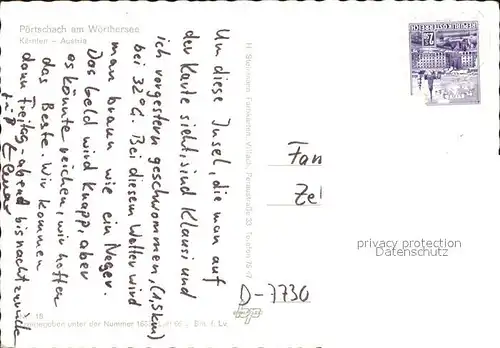 Pörtschach am Wörthersee
Kärnten – Austria
Um diese Insel, die man auf
der Karte sieht, sind Klausi und
ich vorgestern geschwommen, (1,5km)
bei 32°C. Bei diesem Wetter wird
man braun wie ein Neger.
Das Geld wird knapp, aber
es könnte reichen, wir hoffen
das Beste. Wir kommen
dann Freitag, abend bis nacht zurück
Fan
Zel
D-7730
privacy protection
Datenschutz
REPUBLIK ÖSTERREICH
18
unter der Nummer